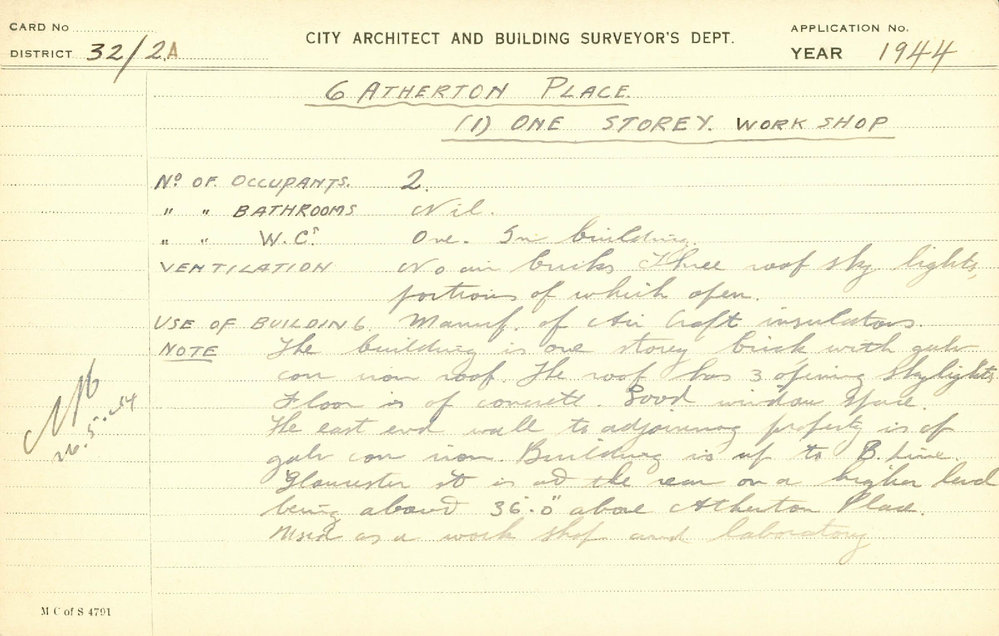 CARD No
DISTRICT 32/2A
CITY ARCHITECT AND BUILDING SURVEYOR'S DEPT.
APPLICATION No.
YEAR 1944
6 ATHERTON PLACE
(1) ONE STOREY. WORK SHOP
No. OF. OCCUPANTS. 2.
" " BATHROOMS Nil.
" " W.Cs One. In building.
VENTILATION No air bricks Three roof sky lights,
portions of which open.
USE OF BUILDING. Manuf. of Air Craft insulators.
NOTE The building is one storey brick with galv
corr iron roof. The roof has 3 opening skylights
Floor is of concrete. Good window space.
The east end wall to adjoining property is of
galv corr iron. Building is up to B. Line.
Gloucester St is at the rear on a higher level
being about 36'-0" above Atherton Place.
Used as a work shop and laboratory
26.5.54
M C of S 4791